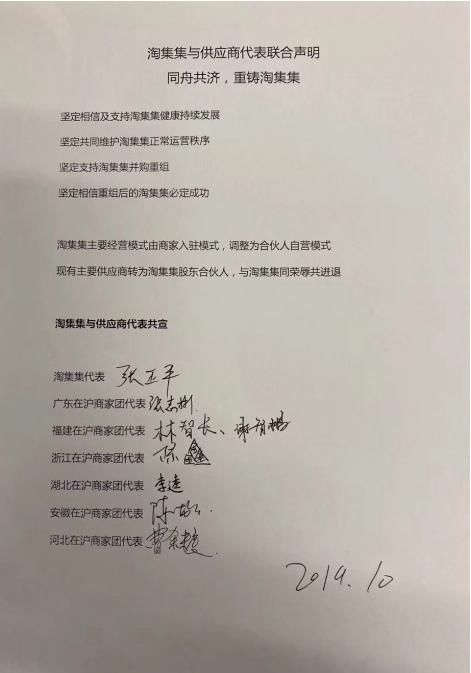 淘集集与供应商代表联合声明
同舟共济，重铸淘集集
坚定相信及支持淘集集健康持续发展
坚定共同维护淘集集正常运营秩序
坚定支持淘集集并购重组
坚定相信重组后的淘集集必定成功
淘集集主要经营模式由商家入驻模式，调整为合伙人自营模式
现有主要供应商转为淘集集股东合伙人，与淘集集同荣辱共进退
淘集集与供应商代表共宣
淘集集代表 张正平
广东在沪商家团代表 张志
福建在沪商家团代表 林智长、谢
浙江在沪商家团代表 陈
湖北在沪商家团代表 李逵
安徽在沪商家团代表 陈
河北在沪商家团代表 曹
2019.10